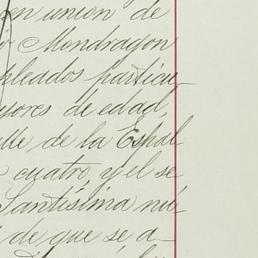 en union de
Mondragon
pleados particu-
yores de edad,
lle de la Espal
cuatro, y el se
Santísima nú
de que se a-